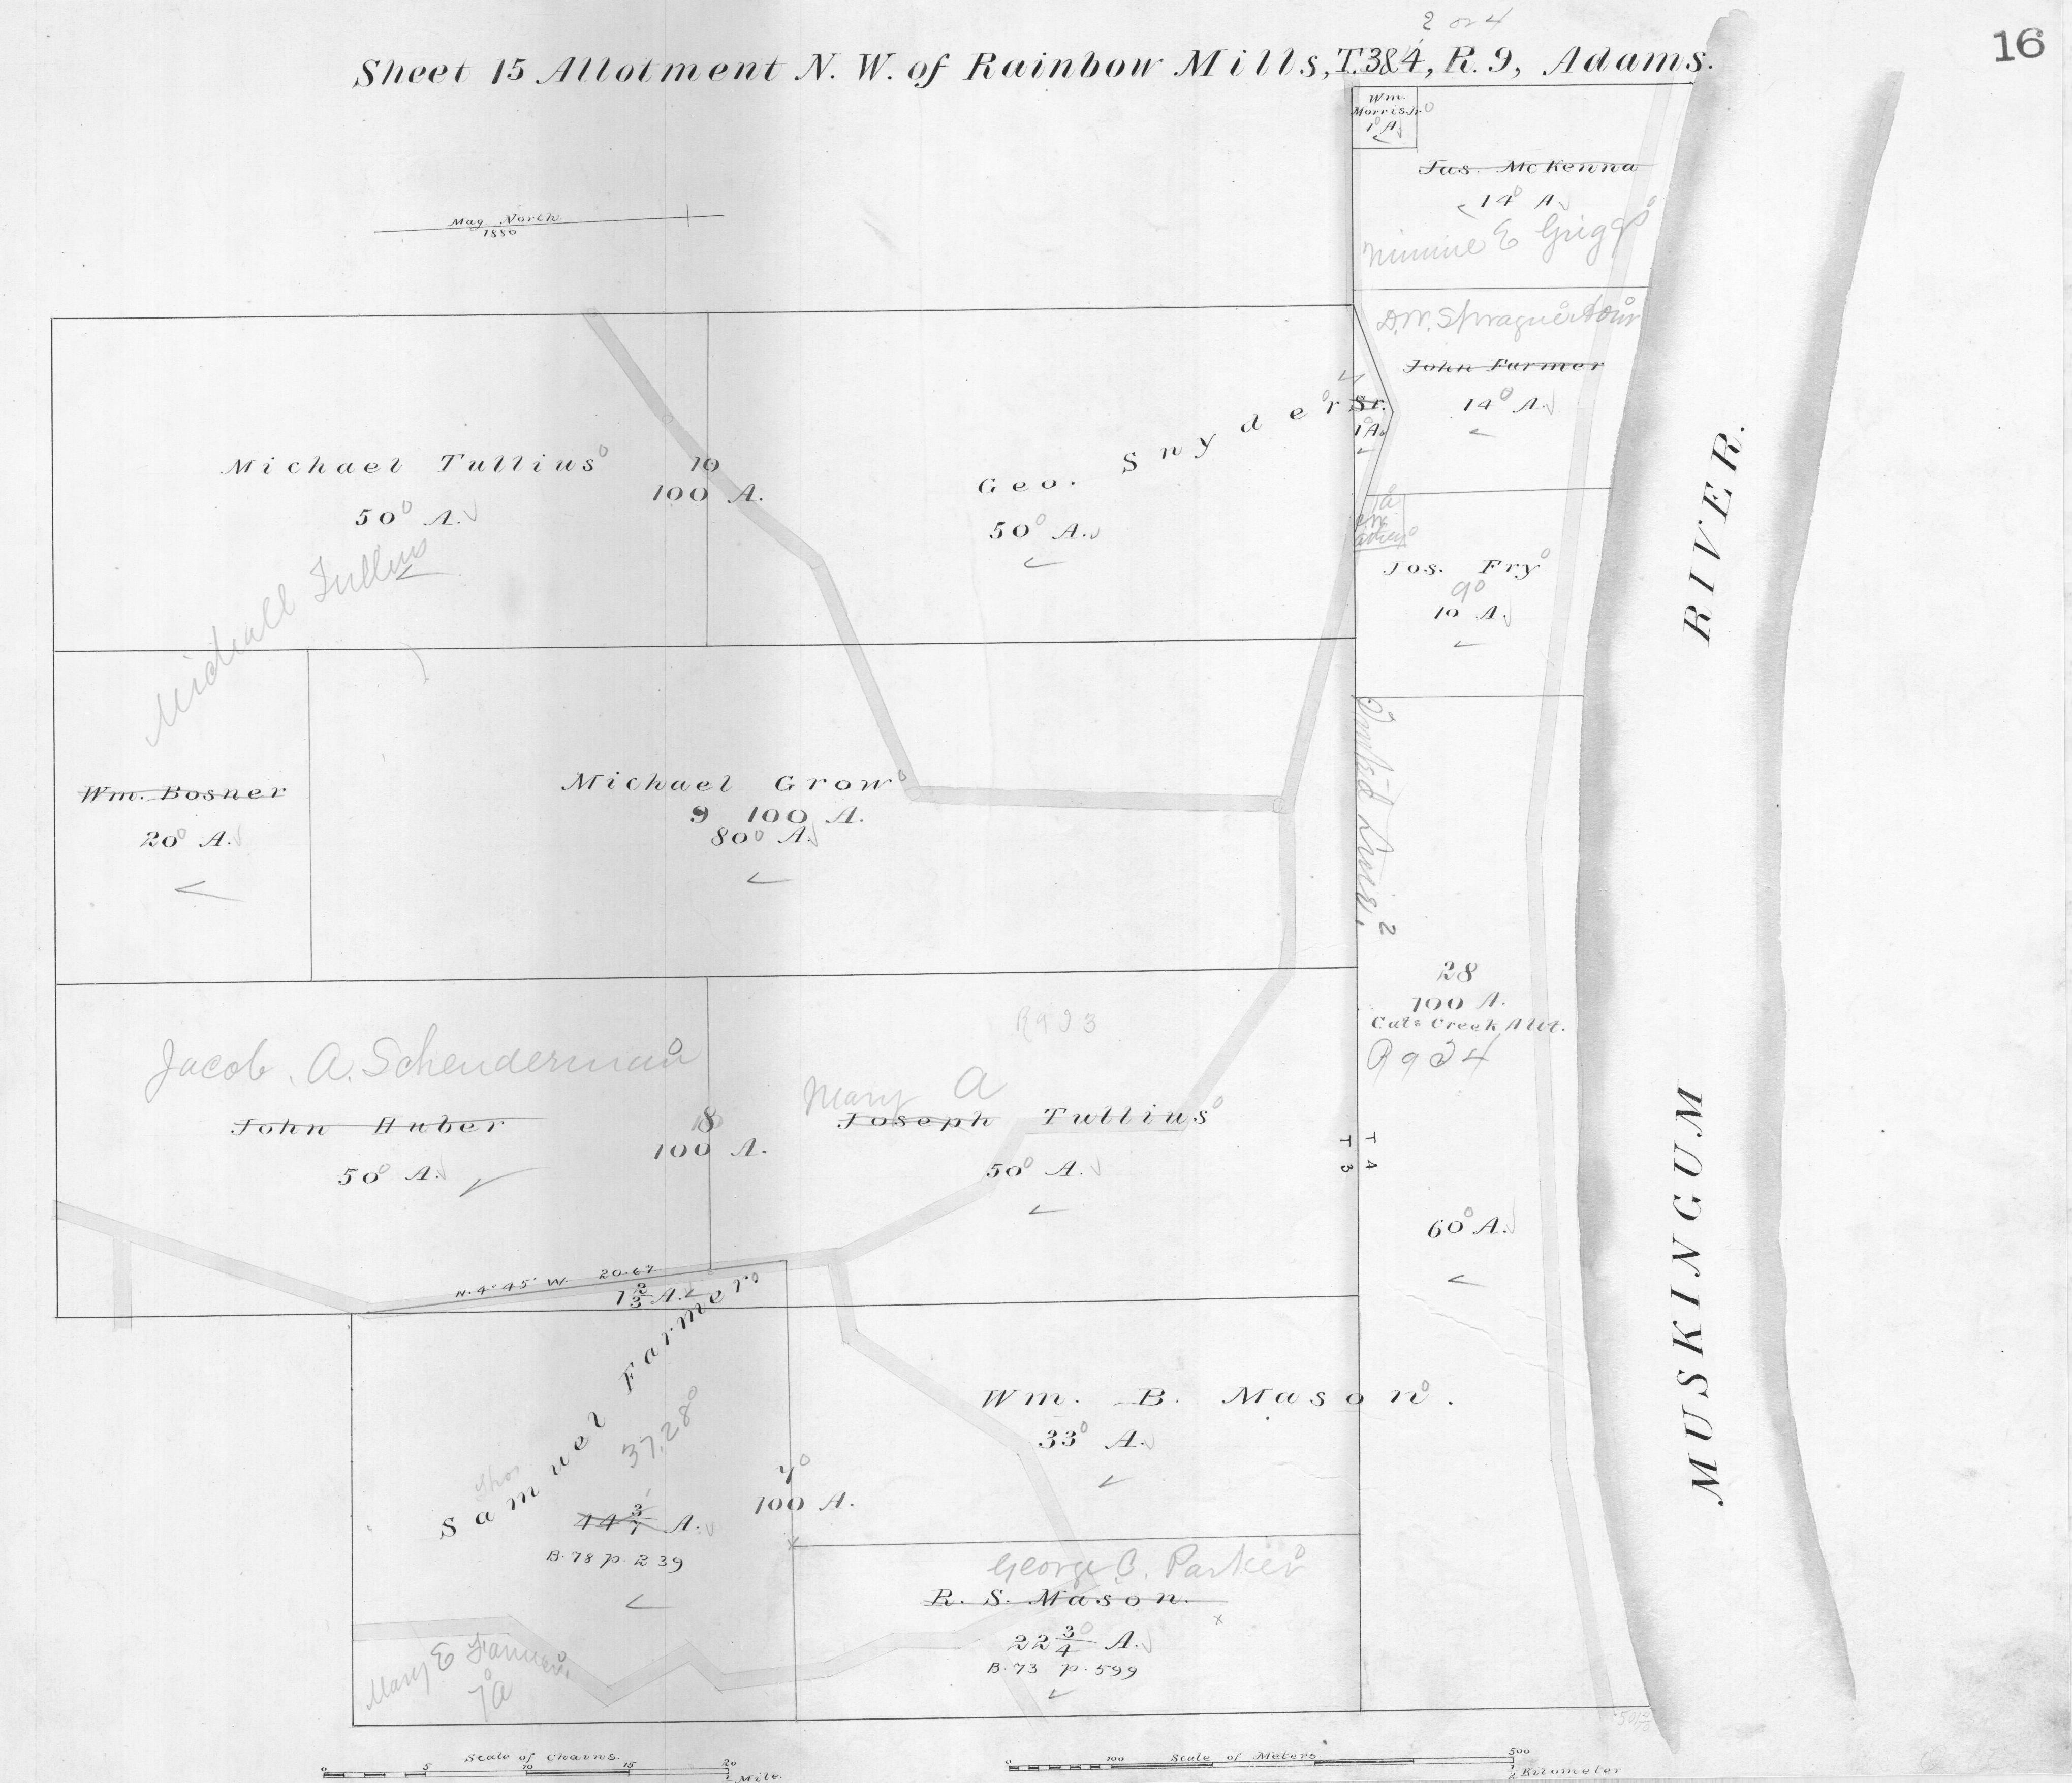 2 or 4
16
Sheet 15 Allotment N. W. of Rainbow Mills, T.3&4, R. 9, Adams.
Wm.
Morris Jr.
1 A.
Jas. McKenna
14 A.
Minnie E Griggs
Mag. North.
1880
D.W. Sprague
John Farmer
14 A.
Michael Tullius
50 A.
Michall Tullius
10
100 A.
Geo. Snyder Sr.
50 A.
1 A.
Jos. Fry
9
10 A.
RIVER.
Wm. Bosner
20 A.
Michael Grow
9 100 A.
80 A.
2
28
100 A.
Cats Creek Allt.
R 9 T 4
R 9 T 3
Jacob. A. Schenderman
John Huber
50 A.
8
100 A.
Mary A
Joseph Tullius
50 A.
T 4
T 3
60 A.
MUSKINGUM
N. 4° 45' W. 20.67.
1 2/3 A.
Samuel Farmer
37.28
44 3/7 A.
B. 78 p. 239
7
100 A.
Wm. B. Mason.
33 A.
George C. Parker
R. S. Mason.
22 3/4 A.
B. 73 p. 599
Mary E Farmer
7 a
Scale of Chains.
0 5 10 15 20
Mile.
Scale of Meters
0 100 500
1/2 Kilometer